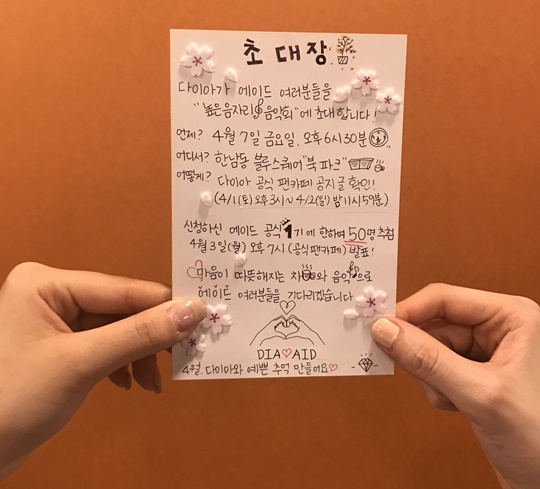 초대장
다이아가 에이드 여러분들을
"높은음자리 음악회"에 초대합니다!
언제? 4월 7일 금요일, 오후 6시 30분
어디서? 한남동 블루스퀘어 "북파크"
어떻게? 다이아 공식 팬카페 공지글 확인!
(4/1(토) 오후 3시~4/2(일) 밤 11시 59분)
신청하신 에이드 공식 1기에 한하여 50명 추첨
4월 3일(월) 오후 7시 (공식 팬카페) 발표!
마음이 따뜻해지는 차와 음악으로
에이드 여러분들을 기다리겠습니다
DIA♡AID
4월. 다이아와 예쁜 추억 만들어요♡